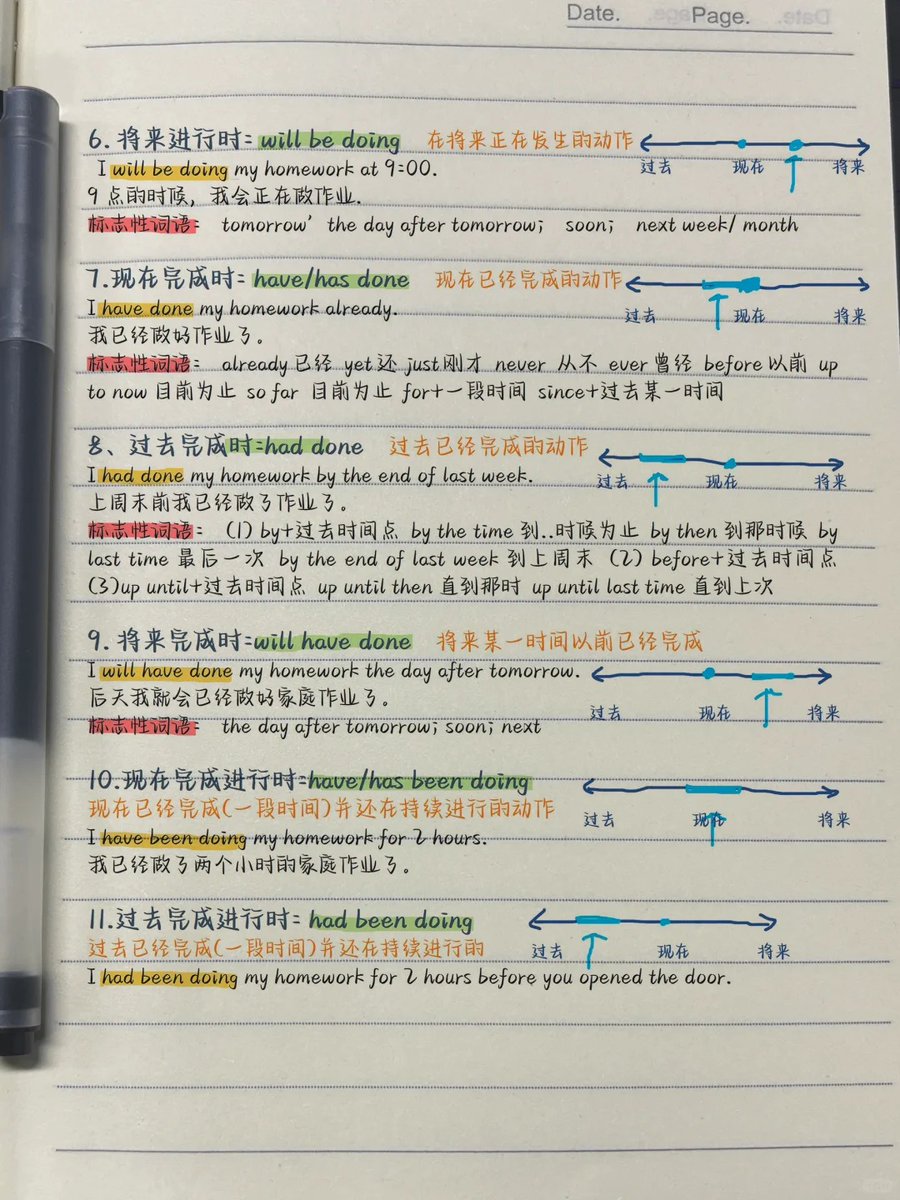 Date.
Page.
6. 将来进行时= will be doing 在将来正在发生的动作
过去 现在 将来
I will be doing my homework at 9:00.
9点的时候，我会正在做作业.
标志性词语： tomorrow' the day after tomorrow； soon； next week/ month
7.现在完成时= have/has done 现在已经完成的动作
过去 现在 将来
I have done my homework already.
我已经做好作业了。
标志性词语： already已经 yet还 just刚才 never 从不 ever曾经 before以前 up
to now 目前为止 so far 目前为止 for+一段时间 since+过去某一时间
8、过去完成时=had done 过去已经完成的动作
过去 现在 将来
I had done my homework by the end of last week.
上周末前我已经做了作业了。
标志性词语： (1) by+过去时间点 by the time 到..时候为止 by then 到那时候 by
last time 最后一次 by the end of last week 到上周末 (2) before+过去时间点
(3)up until+过去时间点 up until then 直到那时 up until last time 直到上次
9. 将来完成时=will have done 将来某一时间以前已经完成
过去 现在 将来
I will have done my homework the day after tomorrow.
后天我就会已经做好家庭作业了。
标志性词语： the day after tomorrow；soon；next
10.现在完成进行时=have/has been doing
现在已经完成(一段时间)并还在持续进行的动作
过去 现在 将来
I have been doing my homework for 2 hours.
我已经做了两个小时的家庭作业了。
11.过去完成进行时= had been doing
过去已经完成(一段时间)并还在持续进行的
过去 现在 将来
I had been doing my homework for 2 hours before you opened the door.